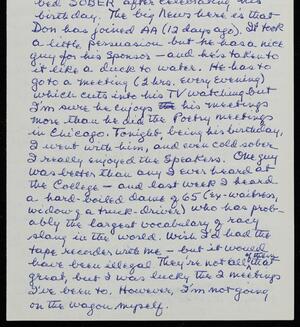 bed SOBER after celebrating his
birthday. The big News here is that
Don has joined AA (12 days ago). It took
a little persuasion but he has a nice
guy for his Sponsor – and he's taken to
it like a duck to water. He has to
go to a meeting (2 hrs. every evening)
which cuts into his TV watching but
I'm sure he enjoys his meetings
more than he did the Poetry meetings
in Chicago. Tonight, being his birthday,
I went with him, and even cold sober
I really enjoyed the Speakers. One guy
was better than any I ever heard at
the College – and last week I heard
a hard-boiled dame of 65 (ex-waitress,
widow of a truck-driver) who has prob-
ably the largest vocabulary of racy
slang in the world. Wish I'd had the
tape recorder with me – but it would
have been illegal. They're not all of them that
great, but I was lucky the 2 meetings
I've been to. However, I'm not going
on the wagon myself.